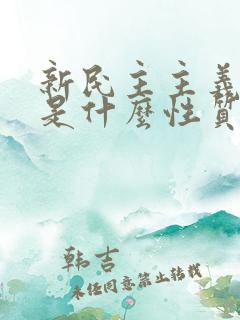 新民主主義
是什麼性質
韩吉
未经同意禁止转载